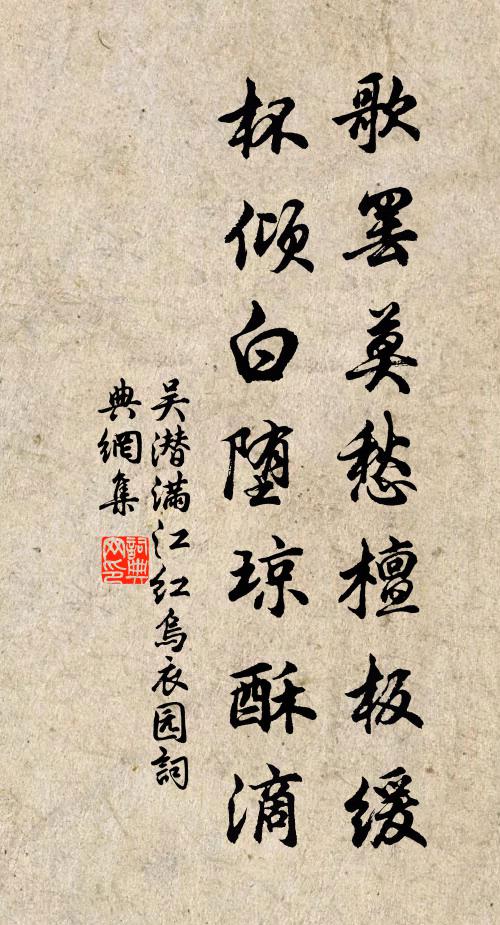 歌罢莫愁檀板缓
杯倾白堕琼酥滴
吴潜满江红乌衣园詞
典網集
詞典
网印